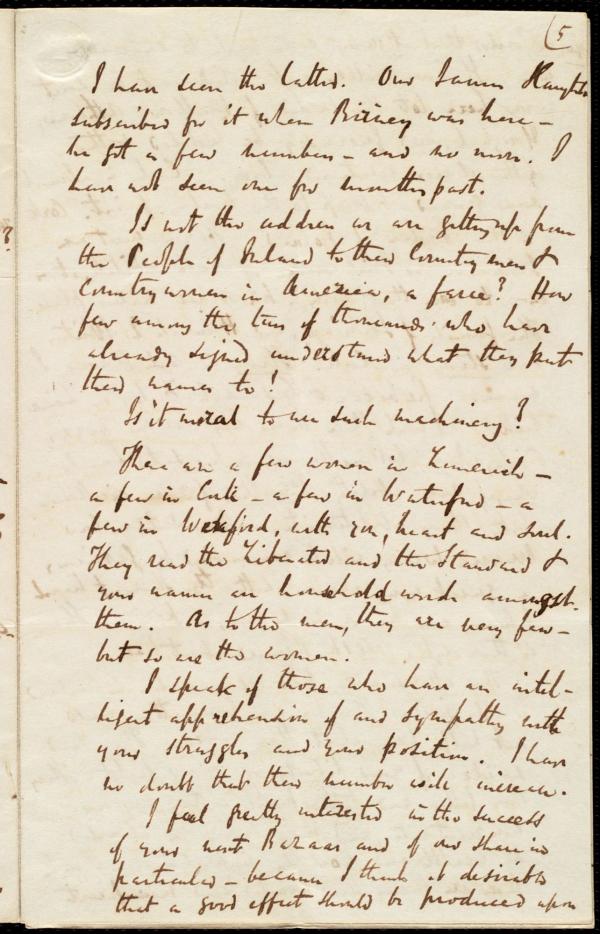 (5
I have seen the latter. Our James Haughton
subscribed for it when Birney was here –
he got a few numbers – and no more. I
have not seen one for months past.
Is not the address we are getting up from
the People of Ireland to their Countrymen &
Countrywomen in America, a farce? How
few among the tens of thousands who have
already signed understand what they put
their names to!
Is it moral to use such machinery?
There are a few women in Limerick –
a few in Cork – a few in Waterford – a
few in Wexford, with you, heart and soul.
They read the Liberator and the Standard &
your names are household words amongst
them. As to the men, they are very few –
but so are the women.
I speak of those who have an intel-
ligent apprehension of and sympathy with
your struggles and your position. I have
no doubt that their number will increase.
I feel greatly interested in the success
of your next Bazaar and of our share in
particular – because I think it desirable
that a good effect should be produced upon